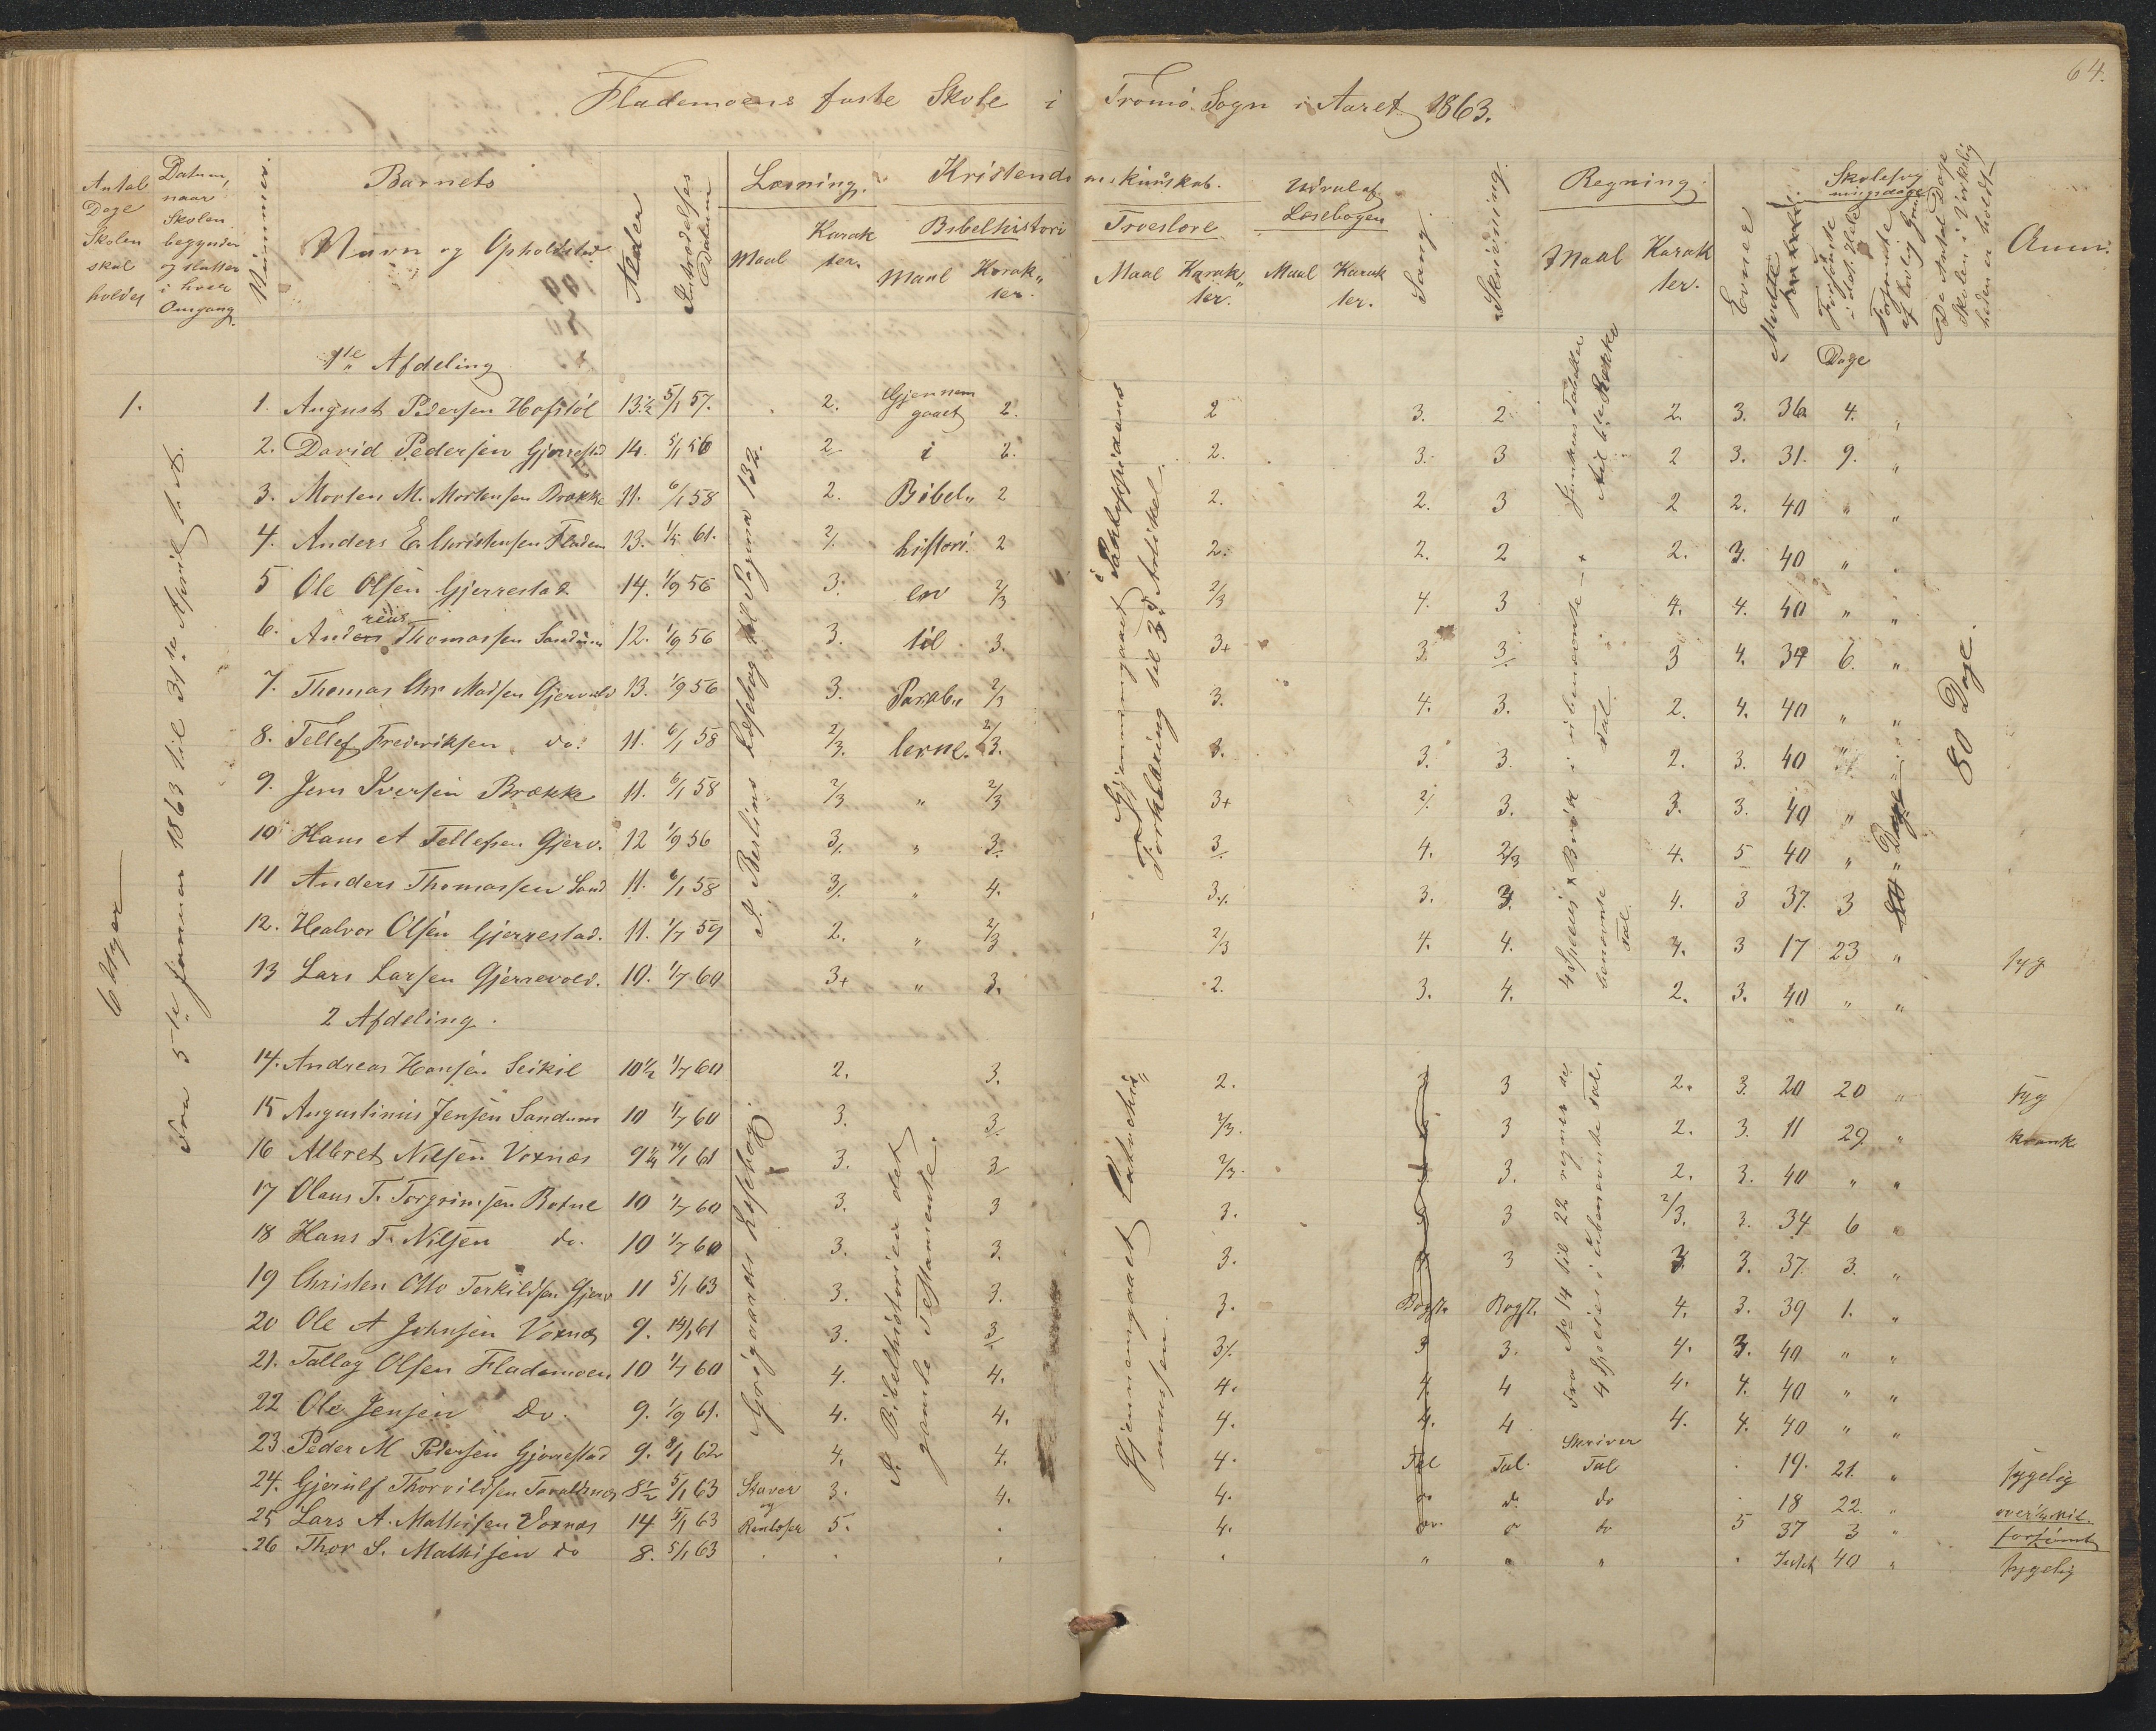 64.
Flademoens faste Skole i Tromø Sogn i Aaret 1863.
Antal Dage Skolen skal holdes
Datum, naar Skolen begynder og slutter i hver Omgang.
Nummer.
Barnets
Navn og Opholdssted
Alder
Indtrædelses Datum
Læsning.
Maal
Karakter.
Kristendomskundskab.
Bibelhistori
Maal Karakter
Troeslære
Maal Karakter.
Udvalg af Læsebogen
Maal Karakter.
Sang.
Skrivning.
Regning.
Maal
Karakter.
Evner
Mødte
Skolesøgningsdage
Forsømte i det Hele
Forsømte af lovlig Grund
De Antal Dage Skolen i Virkeligheden er holdt
Anm.
1ste Afdeling
Dage
1.
6 Uger
Fra 5te Januar 1863 til 31te April s. A.
1. August Pedersen Hofstøl 13½ 5/1 57. 2. Gjennemgaaet 2. 2 3. 2 2. 3. 36 4. "
2. David Pedersen Gjerrestad 14. 5/1 56 2 i 2. 2. 3. 3 2 3. 31. 9. "
3. Morten M. Mortensen Brække 11. 6/1 58 2. Bibel" 2 2. 2. 3 2 2. 40 " "
4. Anders E. Christensen Fladem 13. 1/5 61. 2/. histori 2 2. 2. 2 2. 3. 40 " "
5 Ole Olsen Gjerrestad 14. 1/9 56 3. en 2/3 2/3 4. 3 4. 4. 40 " "
6. Andreas Thomassen Sandum 12. 1/9 56 3. til 3. 3+ 3. 3 3 4. 34 6. "
7. Thomas Chr Madsen Gjervold 13. 1/9 56 3. Parab" 2/3 3. 4. 3. 2. 4. 40 " "
8. Tellef Frederiksen do. 11. 6/1 58 2/3. lerne. 2/3. 3. 3. 3. 2. 3. 40 "
9. Jens Iversen Brække 11. 6/1 58 2/3 " 2/3 3+ 2/. 3. 3. 3. 40 "
10 Hans A Tellefsen Gjerv. 12 1/9 56 3/. " 3. 3 4. 2/3 4. 5 40 "
11 Anders Thomassen Sand 11. 6/1 58 3/. " 4. 3/. 3. 3. 4. 3 37. 3
12. Halvor Olsen Gjerrestad. 11. 1/7 59 2. " 2/3 2/3 4. 4. 4. 3 17 23 " syg
13 Lars Larsen Gjerrevold. 10. 1/7 60 3+ " 3. 2. 3. 4. 2. 3. 40 " "
P. Berlins Læsebog til Pagina 132.
Gjennemgaaet i Pontoppidans Forklaring til 3die Artikel.
80 Dage.
2 Afdeling.
14. Andreas Hansen Seikil 10½ 1/7 60 2. 3. 2. 3 3 2. 3. 20 20 " syg
15 Augustinius Jensen Sandum 10 1/7 60 3. 3. 2/3. 3 2. 3. 11 29 " krank
16 Albret Nilsen Voxnæs 9¼ 14/1 61 3. 3 2/3. 3. 2. 3. 40 " "
17 Olaus T. Torgrimsen Botne 10 1/7 60 3. 3 3. 3 2/3. 3. 34 6 "
18 Hans T. Nilsen do. 10 1/7 60 3. 3. 3. 3 3 3. 37. 3. "
19 Christen Otto Terkildsen Gjerv 11 5/1 63 3. 3. 3. Bogst. Bogst. 4. 3. 39 1. "
20 Ole A Johnsen Voxnæs 9. 14/1 61 3. 3 3/. 3 3. 4. 3. 40 " "
21. Tallag Olsen Flademoen 10 1/7 60 4. 4. 4. 4. 4 4. 4. 40 " "
22 Ole Jensen Do. 9. 1/9 61. 4. 4. 4. 4. 4 4. 4. 40 " "
23. Peder M Pedersen Gjerrestad 9. 8/1 62 4. 4. 4. Tal Tal. Skriver Tal 19. 21. " sygelig
24. Gjerulf Thorvildsen Torvaldsnæs 8½ 5/1 63 Staver og 3. 4. 4. do d. do 18 22. "
25 Lars A. Mathisen Voxnæs 14 5/1 63 Renlæser 5. . 4. do do do 5 37 3 " forsømt
26 Thor S. Mathisen do 8. 5/1 63 . . . " " " " Intet 40 " sygelig
Griegaards Læsebog
P. Bibelhistorier det gamle Testamente.
Gjennemgaaet Catechismussen.
Fra No 14 til 22 regner de 4 Species i Ubenævnte Tal.